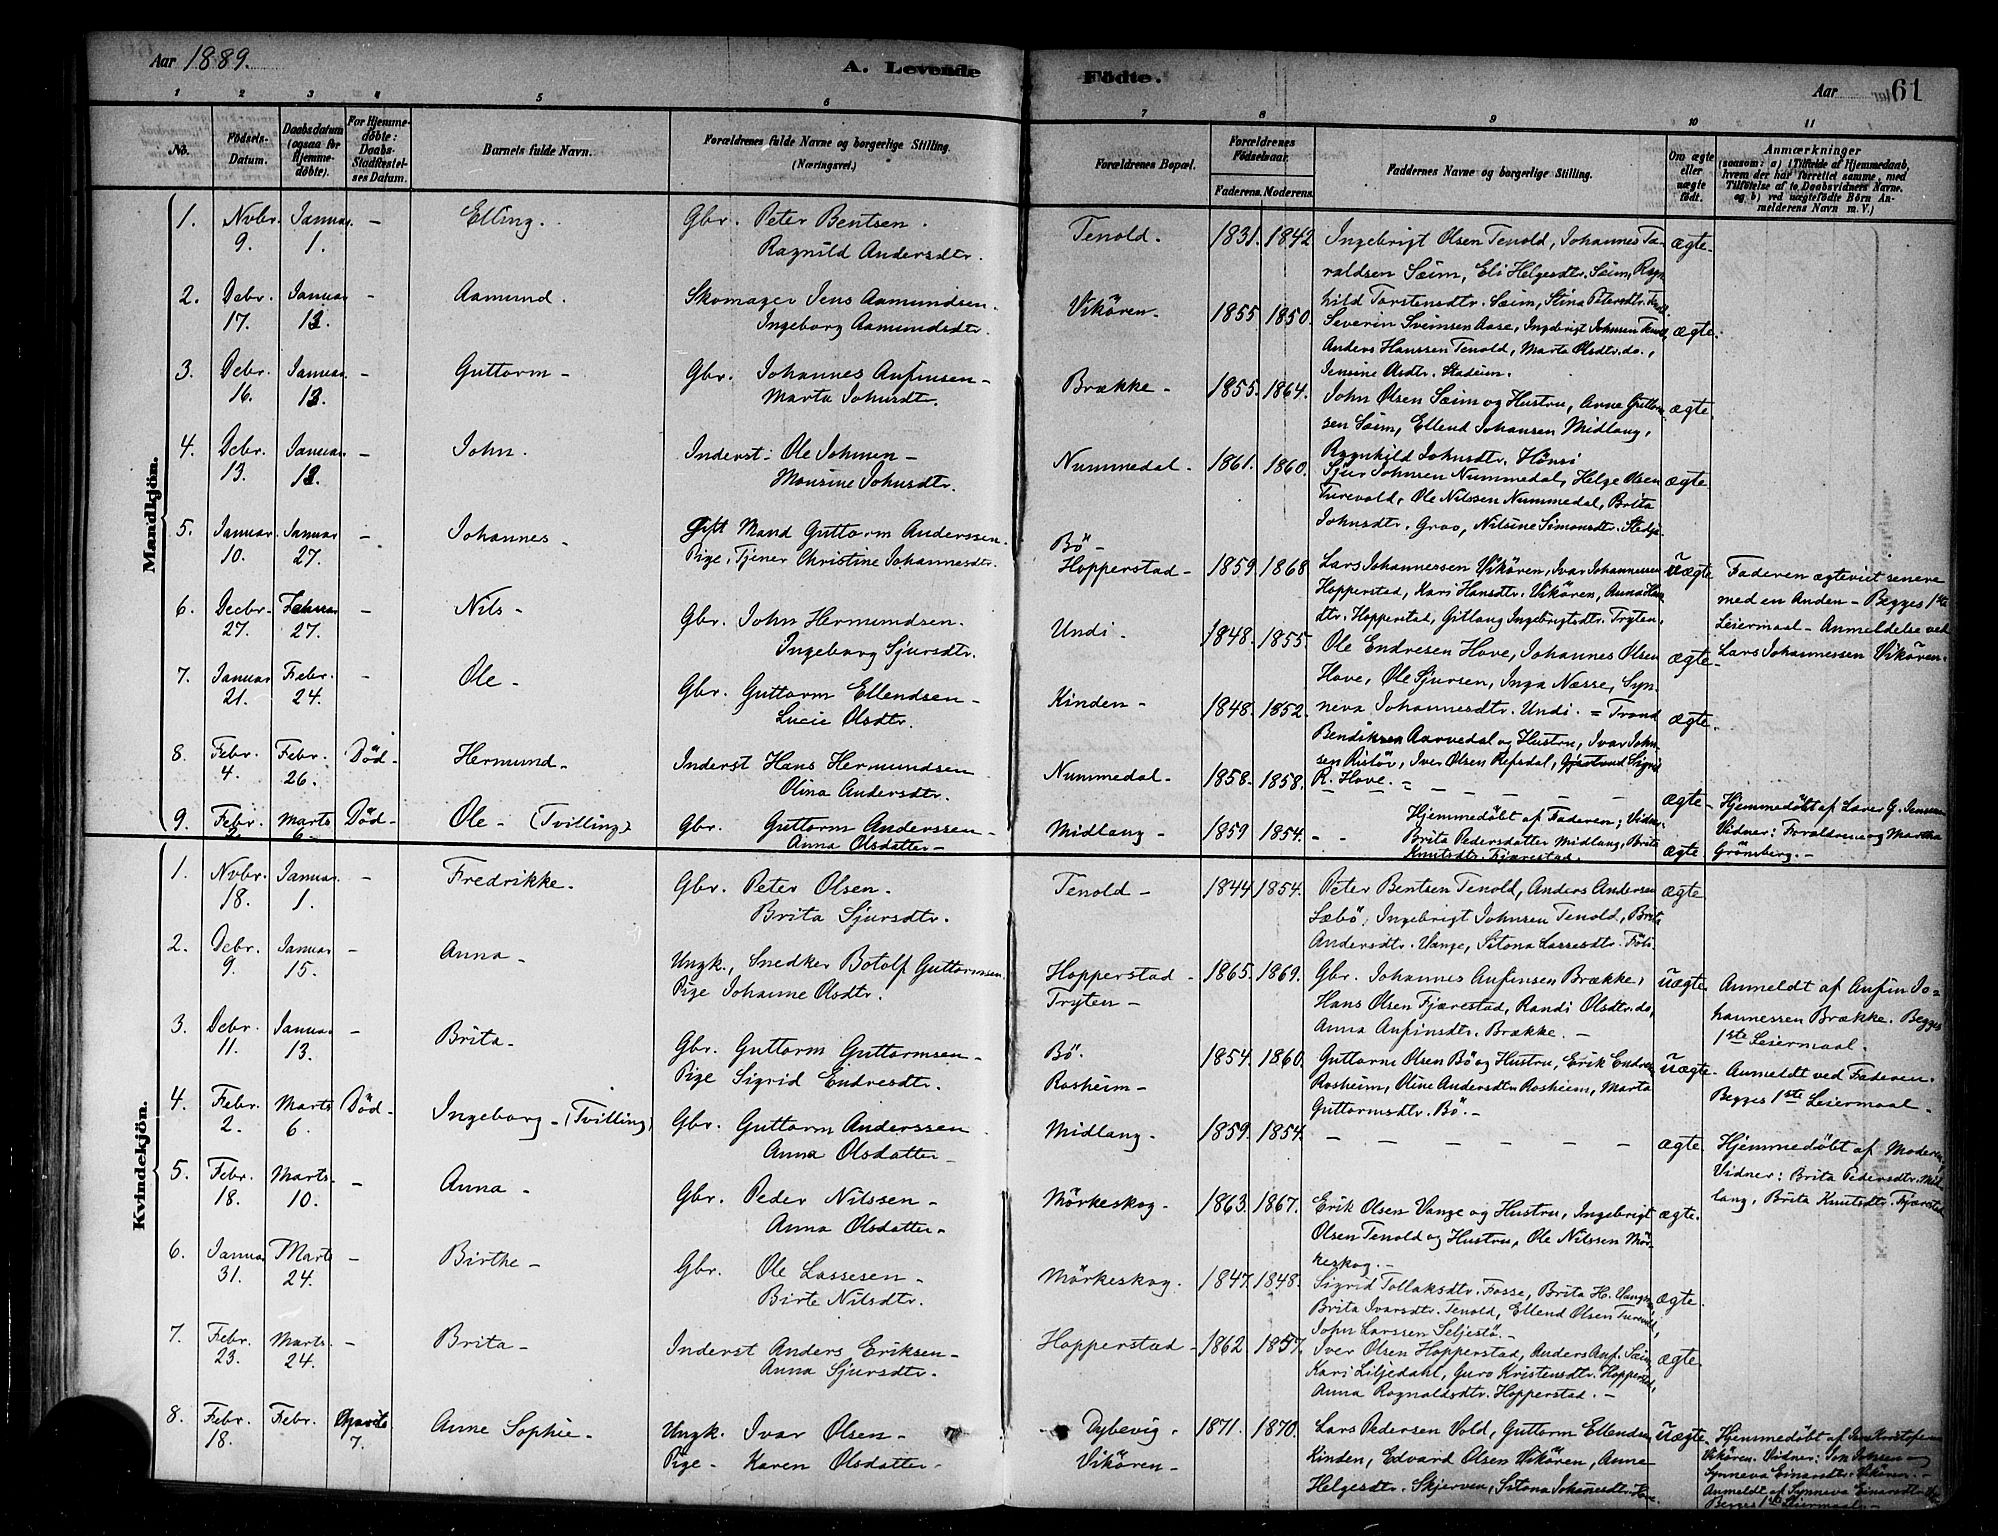 Aar 1889.
A. Levende Födte.
Aar 61
1 2 3 4 5 6 7 8 9 10 11
No.
Födsels-Datum.
Daabsdatum (ogsaa for Hjemmedøbte).
For Hjemmedøbte: Daabs-Stadfæstelses Datum.
Barnets fulde Navn.
Forældrenes fulde Navne og borgerlige Stilling. (Næringsvei.)
Forældrenes Bopæl.
Forældrenes Födselsaar.
Faderens. Moderens.
Faddernes Navne og borgerlige Stilling.
Om ægte eller uægte født.
Anmærkninger
(saasom: a) i Tilfælde af Hjemmedaab,
hvem der har forrettet samme, med
Tilføielse af to Daabsvidners Navne.
og b) ved uægtefødte Børn An-
melderens Navn m. V.)
Mandkjön.
1. Nvbr. 9. Januar 1. - Elling. Gbr. Peter Bentsen. Ragnild Andersdtr. Tenold. 1831. 1842 Ingebrigt Olsen Tenold, Johannes Ta-
raldsen Sæim, Eli Helgesdtr. Sæim, Ragn
hild Torstensdtr. Sæim, Stina Petersdtr. ægte-
2. Debr. 17. Januar 13. - Aamund. Skomager Jens Aamundsen- Ingeborg Aamundsdtr. Vikören. 1855 1850. Severin Sveinsen Aase, Ingebrigt Johnsen Tenold,
Anders Hanssen Tenold, Marta Olsdtr. do.,
Olsdtr. Stadeim. ægte.
3. Debr. 16. Januar 13. - Guttorm- Gbr. Johannes Anfinsen- Marta Johnsdtr. Brække- 1855. 1864. John Olsen Sæim og Hustru, Arne Guttorm
sen Sæim, Ellend Johansen Midlang,
Ragnhild Johnsdtr. Hönsi ægte.
4. Debr. 13. Januar 13. - John. Inderst: Ole Johnsen- Monsine Johnsdtr. Nummedal- 1861. 1860. Sjur Johnsen Nummedal, Helge Olsen
Turevold, Ole Nilssen Nummedal, Brita
Johnsdtr. Groo, Nilsine Simonsdtr. ægte.
5. Januar 10. Januar 27. - Johannes- Gift Mand Guttorm Anderssen. Pige, Tjener Christine Johannesdtr. Bö- Hopperstad- 1859. 1868 Lars Johannessen Vikören, Ivar Johannessen
Hopperstad, Kari Hansdtr. Vikören, Anna
dtr. Hopperstad, Gitlaug Ingebrigtsdtr. Tryten, uægte Faderen ægteviet senere
med en Anden- Begges 1ste
Leiermaal- Anmeldelse ved
Lars Johannessen Vikören.
6. Decbr. 27. Februar 27. - Nils- Gbr. John Hermundsen. Ingeborg Sjursdtr. Undi. 1848. 1855. Ole Endresen Hove, Johannes Olsen
Hove, Ole Sjursen, Inga Næsse, Syn-
neva Johannesdtr. Undi. ægte-
7. Januar 21. Febr. 24. - Ole- Gbr. Guttorm Ellendsen- Lucie Olsdtr. Kinden- 1848. 1852. = Trond
Bendiksen Aarvedal og Hustru, Ivar John-
sen Ristöv, Iver Olsen Refsdal, Sigrid
R. Hove. ægte.
8. Febr. 4. Febr. 26. Död- Hermund- Inderst Hans Hermundsen Olina Andersdtr. Nummedal- 1858. 1858. - - - ægte- Hjemmedöbt af Lærer G. Jensen.
Vidner: Forældrene og Martha
Grönsberg.-
9. Febr. 2. Marts 6. Död- Ole- (Tvilling) Gbr. Guttorm Anderssen- Anna Olsdatter- Midlang- 1859 1854. - - Hjemmedöbt af Faderen; Vidner.
Brita Pedersdatter Midlang, Brita
Knutsdtr. Fjærestad. ægte
Kvindekjön.
1. Nvbr. 18. Januar 1. - Fredrikke. Gbr. Peter Olsen. Brita Sjursdtr. Tenold- 1844 1854. Peter Bentsen Tenold, Anders Andersen
Sæbö, Ingebrigt Johnsen Tenold, Brita
Andersdtr. Vange, Sitona Lassesdtr. ægte
2. Debr. 9. Januar 15. - Anna- Ungk., Snedker Botolf Guttormsen. Pige Johanne Olsdtr. Hopperstad- Tryten- 1865. 1869. Gbr. Johannes Anfinsen Brække,
Hans Olsen Fjærestad, Randi Olsdtr. do,
Anna Anfinsdtr. Brække.- uægte. Anmeldt af Anfin Jo-
hannessen Brække. Begges
1ste Leiermaal.
3. Debr. 11. Januar 13. - Brita- Gbr. Guttorm Guttormsen- Pige Sigrid Endresdtr. Bö. Rosheim- 1854. 1860. Guttorm Olsen Bö og Hustru, Erik Endres
Rosheim, Oline Andersdtr. Rosheim, Marta
Guttormsdtr. Bö.- uægte- Anmeldt ved Faderen.
Begges 1ste Leiermaal-
4. Febr. 2. Marts 6. Död- Ingeborg- (Tvilling) Gbr. Guttorm Anderssen Anna Olsdatter- Midlang- 1859. 1854. - - - ægte. Hjemmedöbt af Moderen,
Vidner: Brita Pedersdtr. Mid-
lang, Brita Knutsdtr. Fjærestad
5. Febr. 18. Marts 10. - Anna- Gbr. Peder Nilssen- Anna Olsdatter- Mörkeskog- 1863. 1867. Erik Olsen Vange og Hustru, Ingebrigt
Olsen Tenold og Hustru, Ole Nilssen Mör-
keskog.- ægte.
6. Januar 31. Marts 24. - Birthe- Gbr. Ole Lassesen- Birte Nilsdtr. Mörkeskog. 1847. 1848. Sigrid Tollaksdtr. Fosse, Brita H. Vange,
Brita Ivarsdtr. Tenold, Ellend Olsen Turevold,
John Larssen Seljestö.- ægte.
7. Febr. 23. Marts 24. - Brita- Inderst Anders Eriksen- Anna Sjursdtr. Hopperstad- 1862 1857. Iver Olsen Hopperstad, Anders Anf. Sæim,
Kari Liljedahl, Guro Kristensdtr. Hopperstad,
Anna Rognaldsdtr. Hopperstad.- ægte.
8. Febr. 18. Febr. 7. Anne Sophie- Ungk. Ivar Olsen- Pige- Karen Olsdatter- Dybevig- Vikören- 1871. 1870. Lars Pedersen Vold, Guttorm Ellendsen
Kinden, Edvard Olsen Vikören, Anna
Helgesdtr. Skjerven, Sitona Johannesdtr. uægte- Hjemmedöbt af
Vikören. Vidner: Jon Johsen og
Synneva Einarsdtr. Vikören.-
Anmeldt af Synneva Einarsdtr.
Begges 1ste Leiermaal-